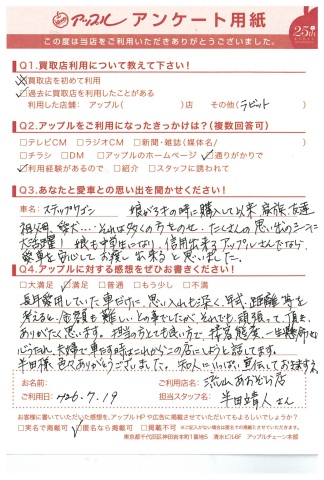 アップル アンケート用紙
25th
この度は当店をご利用いただきありがとうございました。
Q1.買取店利用について教えて下さい!
買取店を初めて利用
過去に買取店を利用したことがある
利用した店舗: アップル( )店 その他(ラビット)
Q2.アップルをご利用になったきっかけは?(複数回答可)
□テレビCM □ラジオCM □新聞・雑誌(媒体名/ )
□チラシ □DM □アップルのホームページ 通りがかりで
利用経験があるので □紹介 □スタッフに誘われて
Q3.あなたと愛車との思い出をお聞かせください!
車名: ステップワゴン 娘が3才の時に購入して以来 家族、友達
祖父母、愛犬… それは多くの方をのせ、たくさんの思い出のシーンに
大活躍! 娘も中学生になり、信用出来るアップルさんでなら、
愛車を安心してお渡し出来ると思いました。
Q4.アップルに対する感想をぜひお書きください!
□大満足 満足 □普通 □もう少し □不満
長年愛用していた車だけに、思い入れも深く、年式、距離等を
考えると、金額も難しいとの事でしたが、それでも頑張って頂き、
ありがたく思います。担当の方とても良い方で、接客態度、一生懸命さも
心うたれ、夫婦で車を
半田様 色々ありがとうございました。知人にいれば、宣伝しておきます
お名前: ご利用店名: 流山あおぞら店
ご利用日: H26.7.19 担当スタッフ名: 半田靖人さん
お客様に書いていただいた感想を、アップルHPや広告に掲載させていただいてもよろしいでしょうか?
□実名で掲載可 匿名なら掲載可 □掲載不可 ※ご記入がない場合は匿名での掲載とさせていただきます。
東京都千代田区神田岩本町1番地5 清水ビル6F アップルチェーン本部